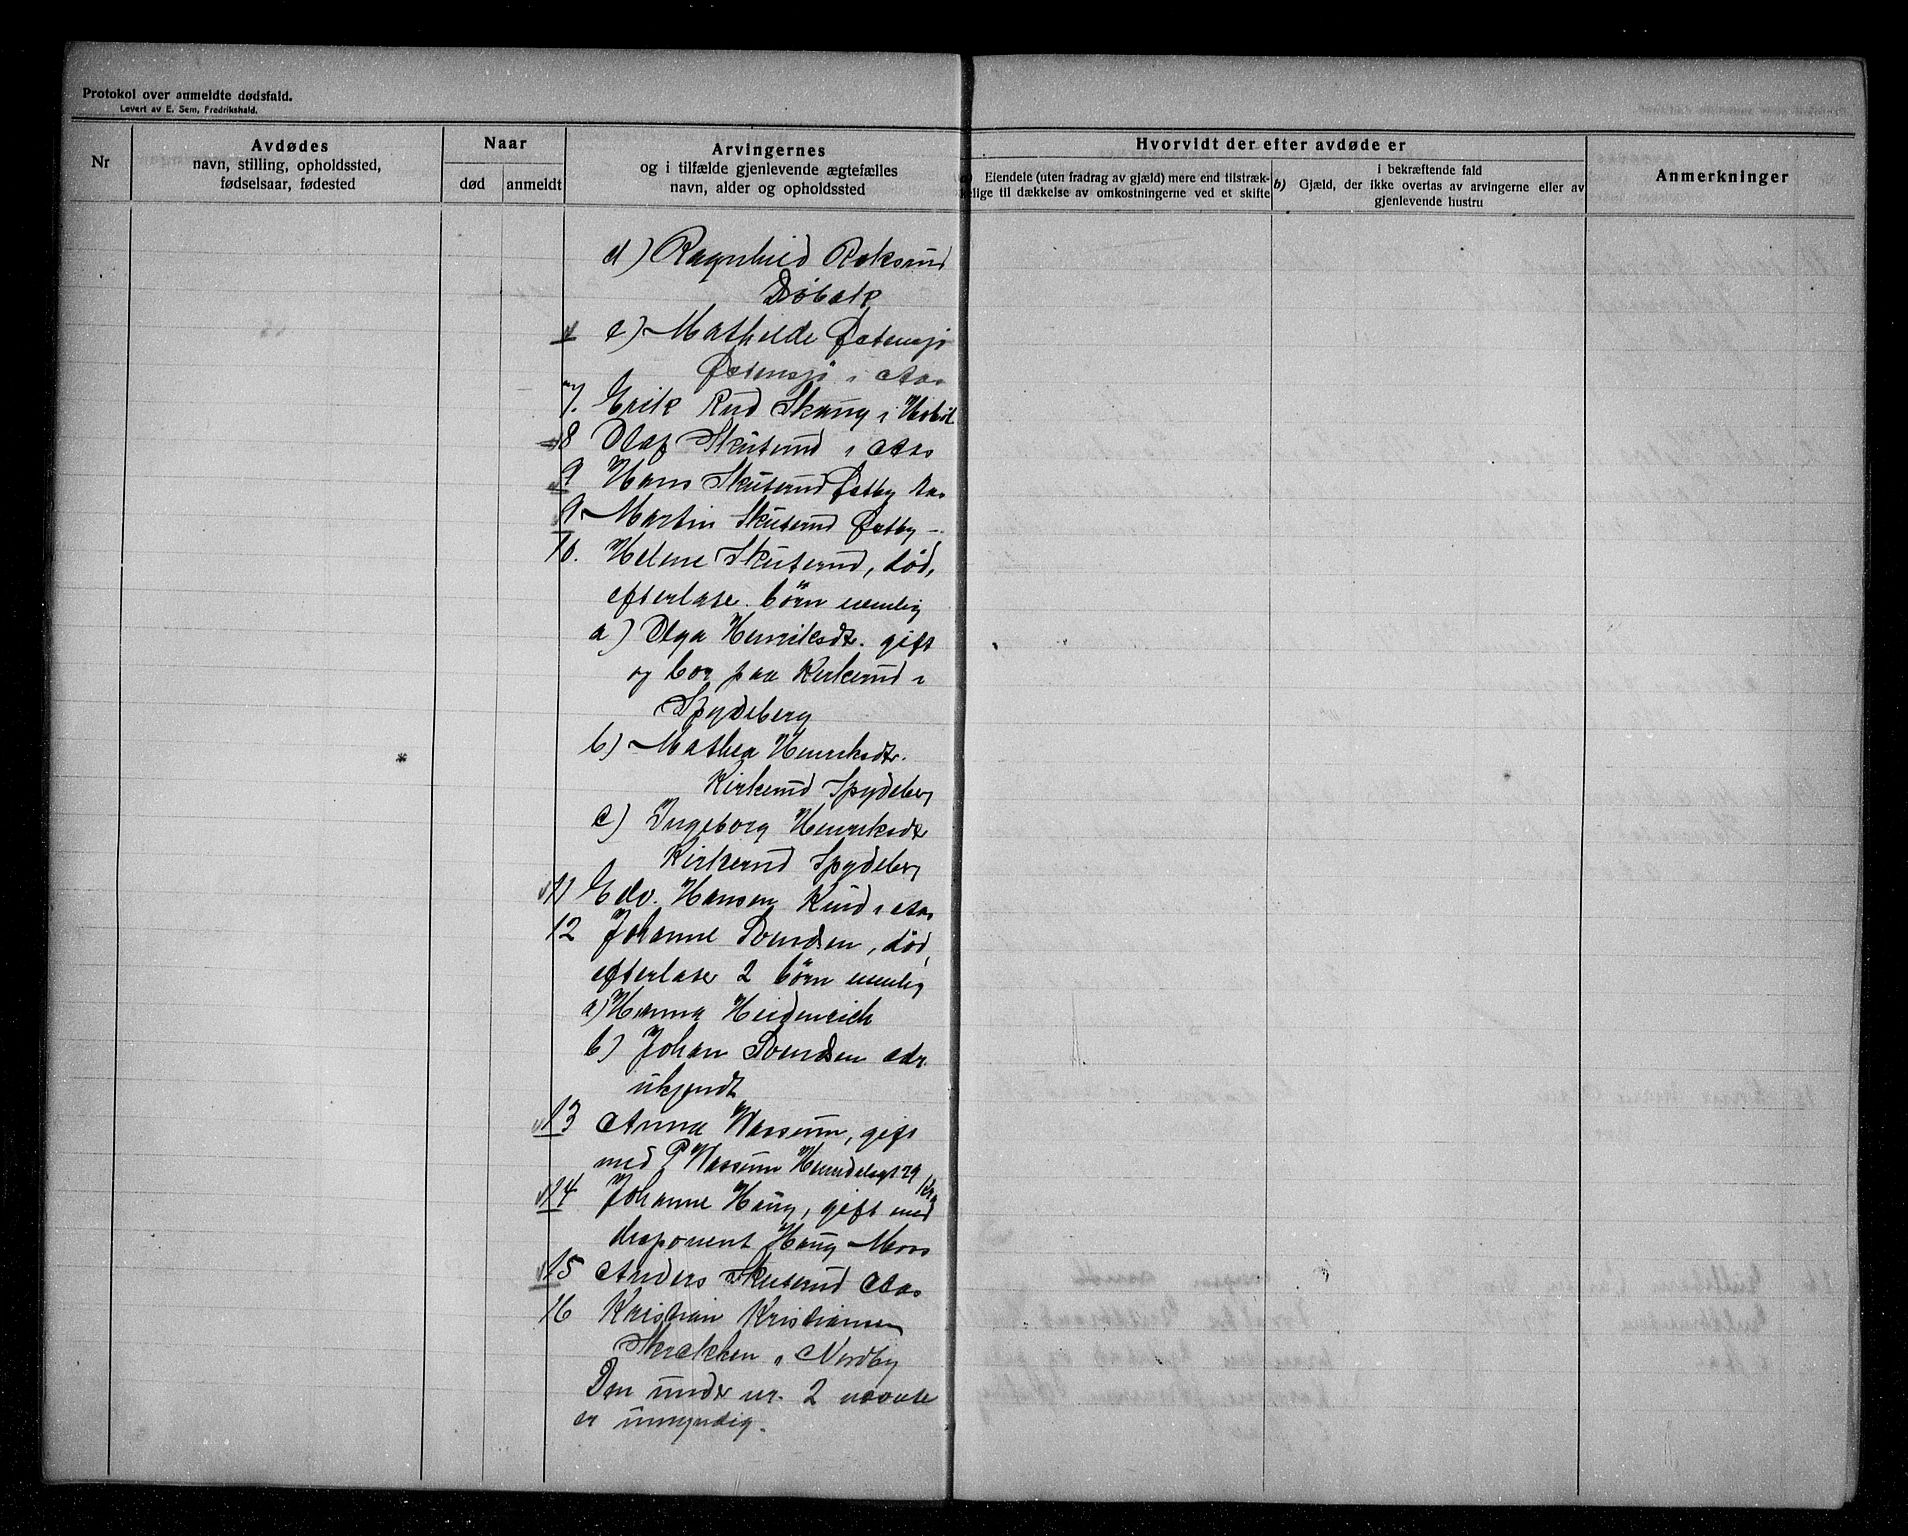 Protokol over anmeldte dødsfald.
Levert av E. Sem, Fredrikshald.
Nr
Avdødes
navn, stilling, opholdssted,
fødselsaar, fødested
Naar
død
anmeldt
Arvingernes
og i tilfælde gjenlevende ægtefælles
navn, alder og opholdssted
Hvorvidt der efter avdøde er
a) Eiendele (uten fradrag av gjæld) mere end tilstræk-
kelige til dækkelse av omkostningerne ved et skifte
b)
i bekræftende fald
Gjæld, der ikke overtas av arvingerne eller av
gjenlevende hustru
Anmerkninger
d) Ragnhild Roksrud
Døbak
e) Mathilde Østensjø
Østensjø i Aas
7. Erik Rud Skaug i Hobøl
8 Olaf Skuterud i Aas
9 Hans Skuterud Østby Aas
9 Martin Skuterud Østby -
10. Helene Skuterud, død,
efterlater børn nemlig
a) Olga Henriksdtr. gift
og bor paa Kirkerud i
Spydeberg
b) Mathea Henriksdtr.
Kirkerud Spydeberg
c) Ingeborg Henriksdtr
Kirkerud Spydeberg
11 Edv. Hansen Rud i Aas
12 Johanne Svendsen, død,
efterlater 2 børn nemlig
a) Hanna Heidenreich
b) Johan Svendsen adr.
ukjendt
13 Anna Wassum, gift
med P Wassum 29 Kra
14 Johanne Haug, gift med
disponent Haug Moss
15 Anders Skuterud Aas
16 Kristian Kristiansen
Skrekken i Nordby
Den under nr. 2 nævnte
er umyndig.